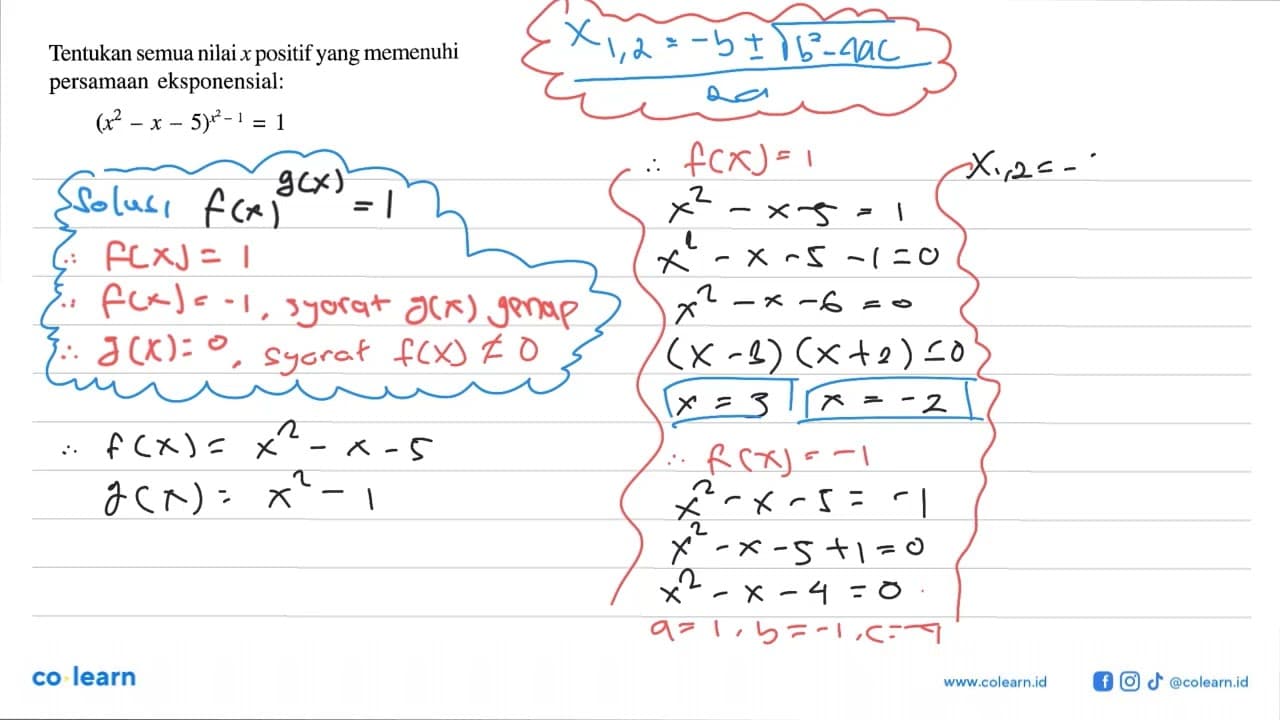 Tentukan semua nilai x positif yang memenuhi
persamaan eksponensial:
(x² – x – 5)^(x² – 1) = 1
x₁,₂ = -b ± √(b² - 4ac)
2a
Solusi f(x)^g(x) = 1
∴ f(x) = 1
∴ f(x) = -1, syarat g(x) genap
∴ g(x) = 0, syarat f(x) ≠ 0
∴ f(x) = x² - x - 5
g(x) = x² - 1
∴ f(x) = 1
x² - x - 5 = 1
x² - x - 5 - 1 = 0
x² - x - 6 = 0
(x - 3)(x + 2) = 0
x = 3 x = -2
∴ f(x) = -1
x² - x - 5 = -1
x² - x - 5 + 1 = 0
x² - x - 4 = 0
a = 1, b = -1, c = -4
x₁,₂ = -
co learn
www.colearn.id
@colearn.id